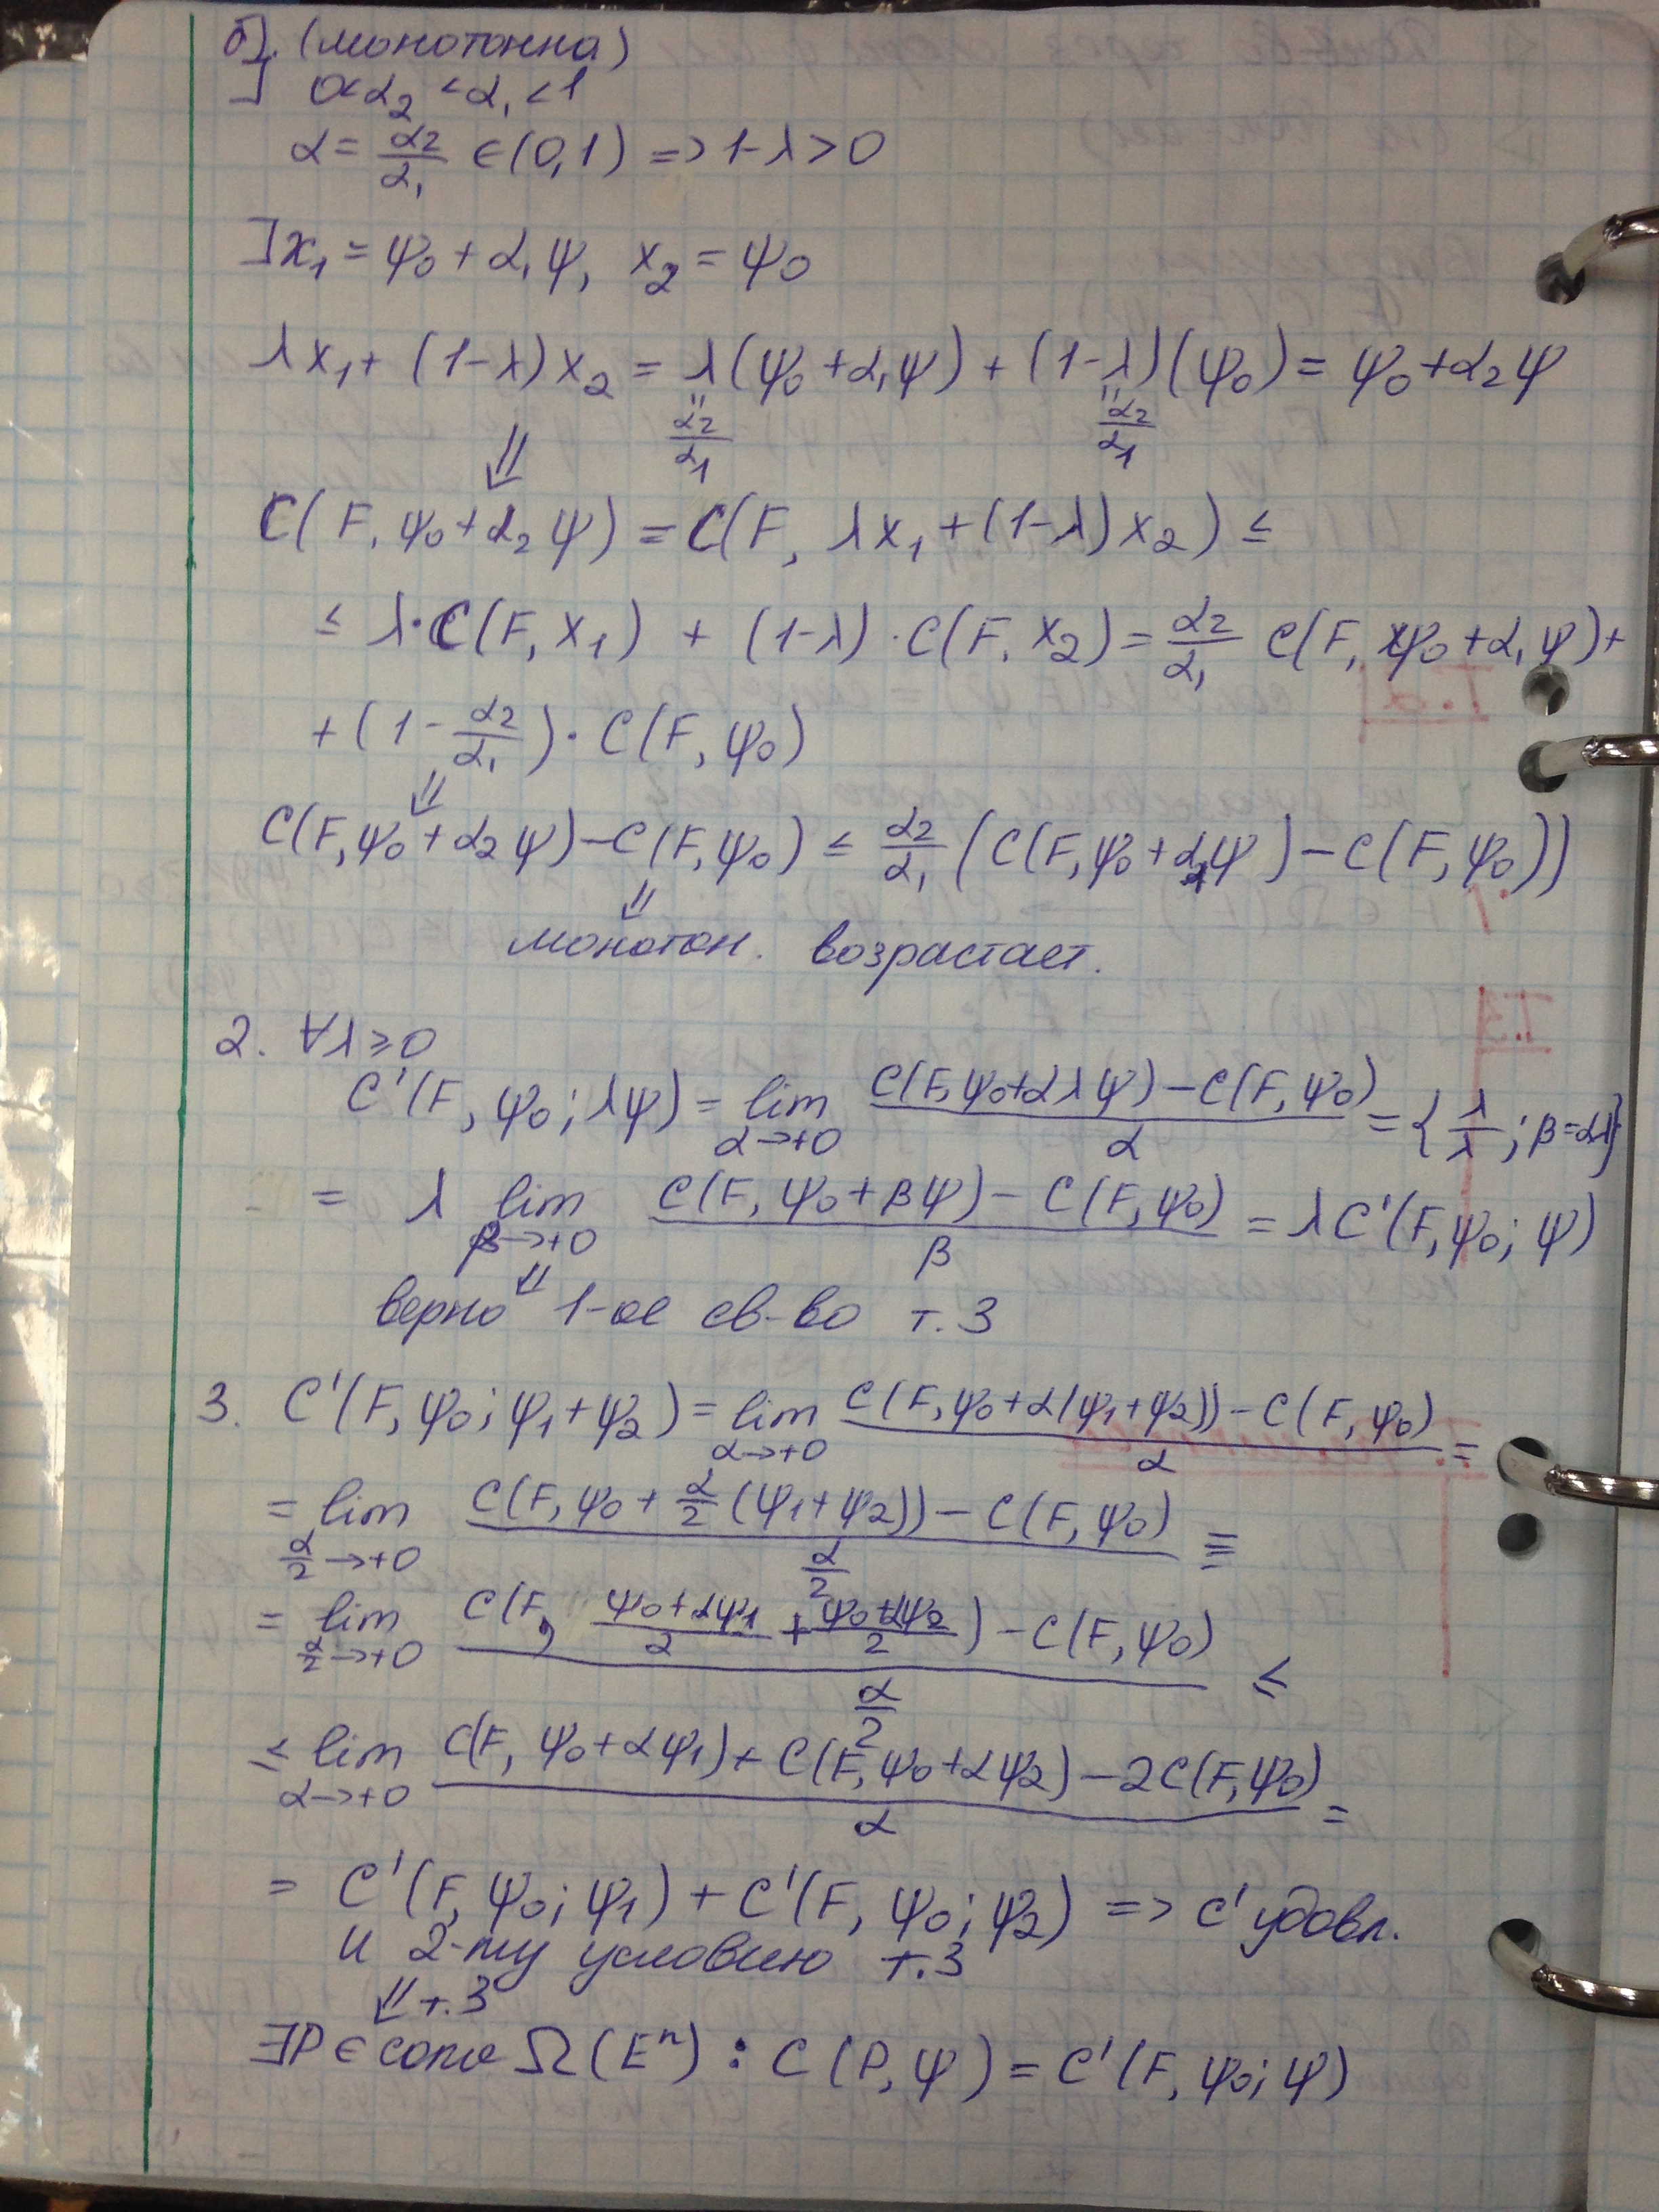 б). (монотонна)
] 0<α₂<α₁<1
α = α₂/α₁ ∈ (0,1) => 1-λ > 0
]x₁ = ψ₀ + α₁ψ, x₂ = ψ₀
λx₁ + (1-λ)x₂ = λ(ψ₀ + α₁ψ) + (1-λ)(ψ₀) = ψ₀ + α₂ψ
" α₂/α₁ " α₂/α₁
⇓
C(F, ψ₀ + α₂ψ) = C(F, λx₁ + (1-λ)x₂) ≤
≤ λ·C(F, x₁) + (1-λ)·C(F, x₂) = α₂/α₁ C(F, ψ₀ + α₁ψ) +
+ (1 - α₂/α₁)·C(F, ψ₀)
⇓
C(F, ψ₀ + α₂ψ) - C(F, ψ₀) ≤ α₂/α₁ (C(F, ψ₀ + α₁ψ) - C(F, ψ₀))
⇓
монотон. возрастает.
2. ∀λ ≥ 0
C'(F, ψ₀; λψ) = lim α→+0 (C(F, ψ₀ + αλψ) - C(F, ψ₀))/α = {λ/λ; β = αλ}
= λ lim β→+0 (C(F, ψ₀ + βψ) - C(F, ψ₀))/β = λC'(F, ψ₀; ψ)
⇓
верно 1-ое св-во т.3
3. C'(F, ψ₀; ψ₁ + ψ₂) = lim α→+0 (C(F, ψ₀ + α(ψ₁ + ψ₂)) - C(F, ψ₀))/α =
= lim α/2→+0 (C(F, ψ₀ + α/2 (ψ₁ + ψ₂)) - C(F, ψ₀))/(α/2) ≡
= lim α/2→+0 (C(F, (ψ₀ + αψ₁)/2 + (ψ₀ + αψ₂)/2) - C(F, ψ₀))/(α/2) ≤
≤ lim α→+0 (C(F, ψ₀ + αψ₁) + C(F, ψ₀ + αψ₂) - 2C(F, ψ₀))/α =
= C'(F, ψ₀; ψ₁) + C'(F, ψ₀; ψ₂) => C' удовл.
и 2-му условию т.3
⇓ т.3
∃P ∈ conv Ω(Eⁿ) : C(P, ψ) = C'(F, ψ₀; ψ)